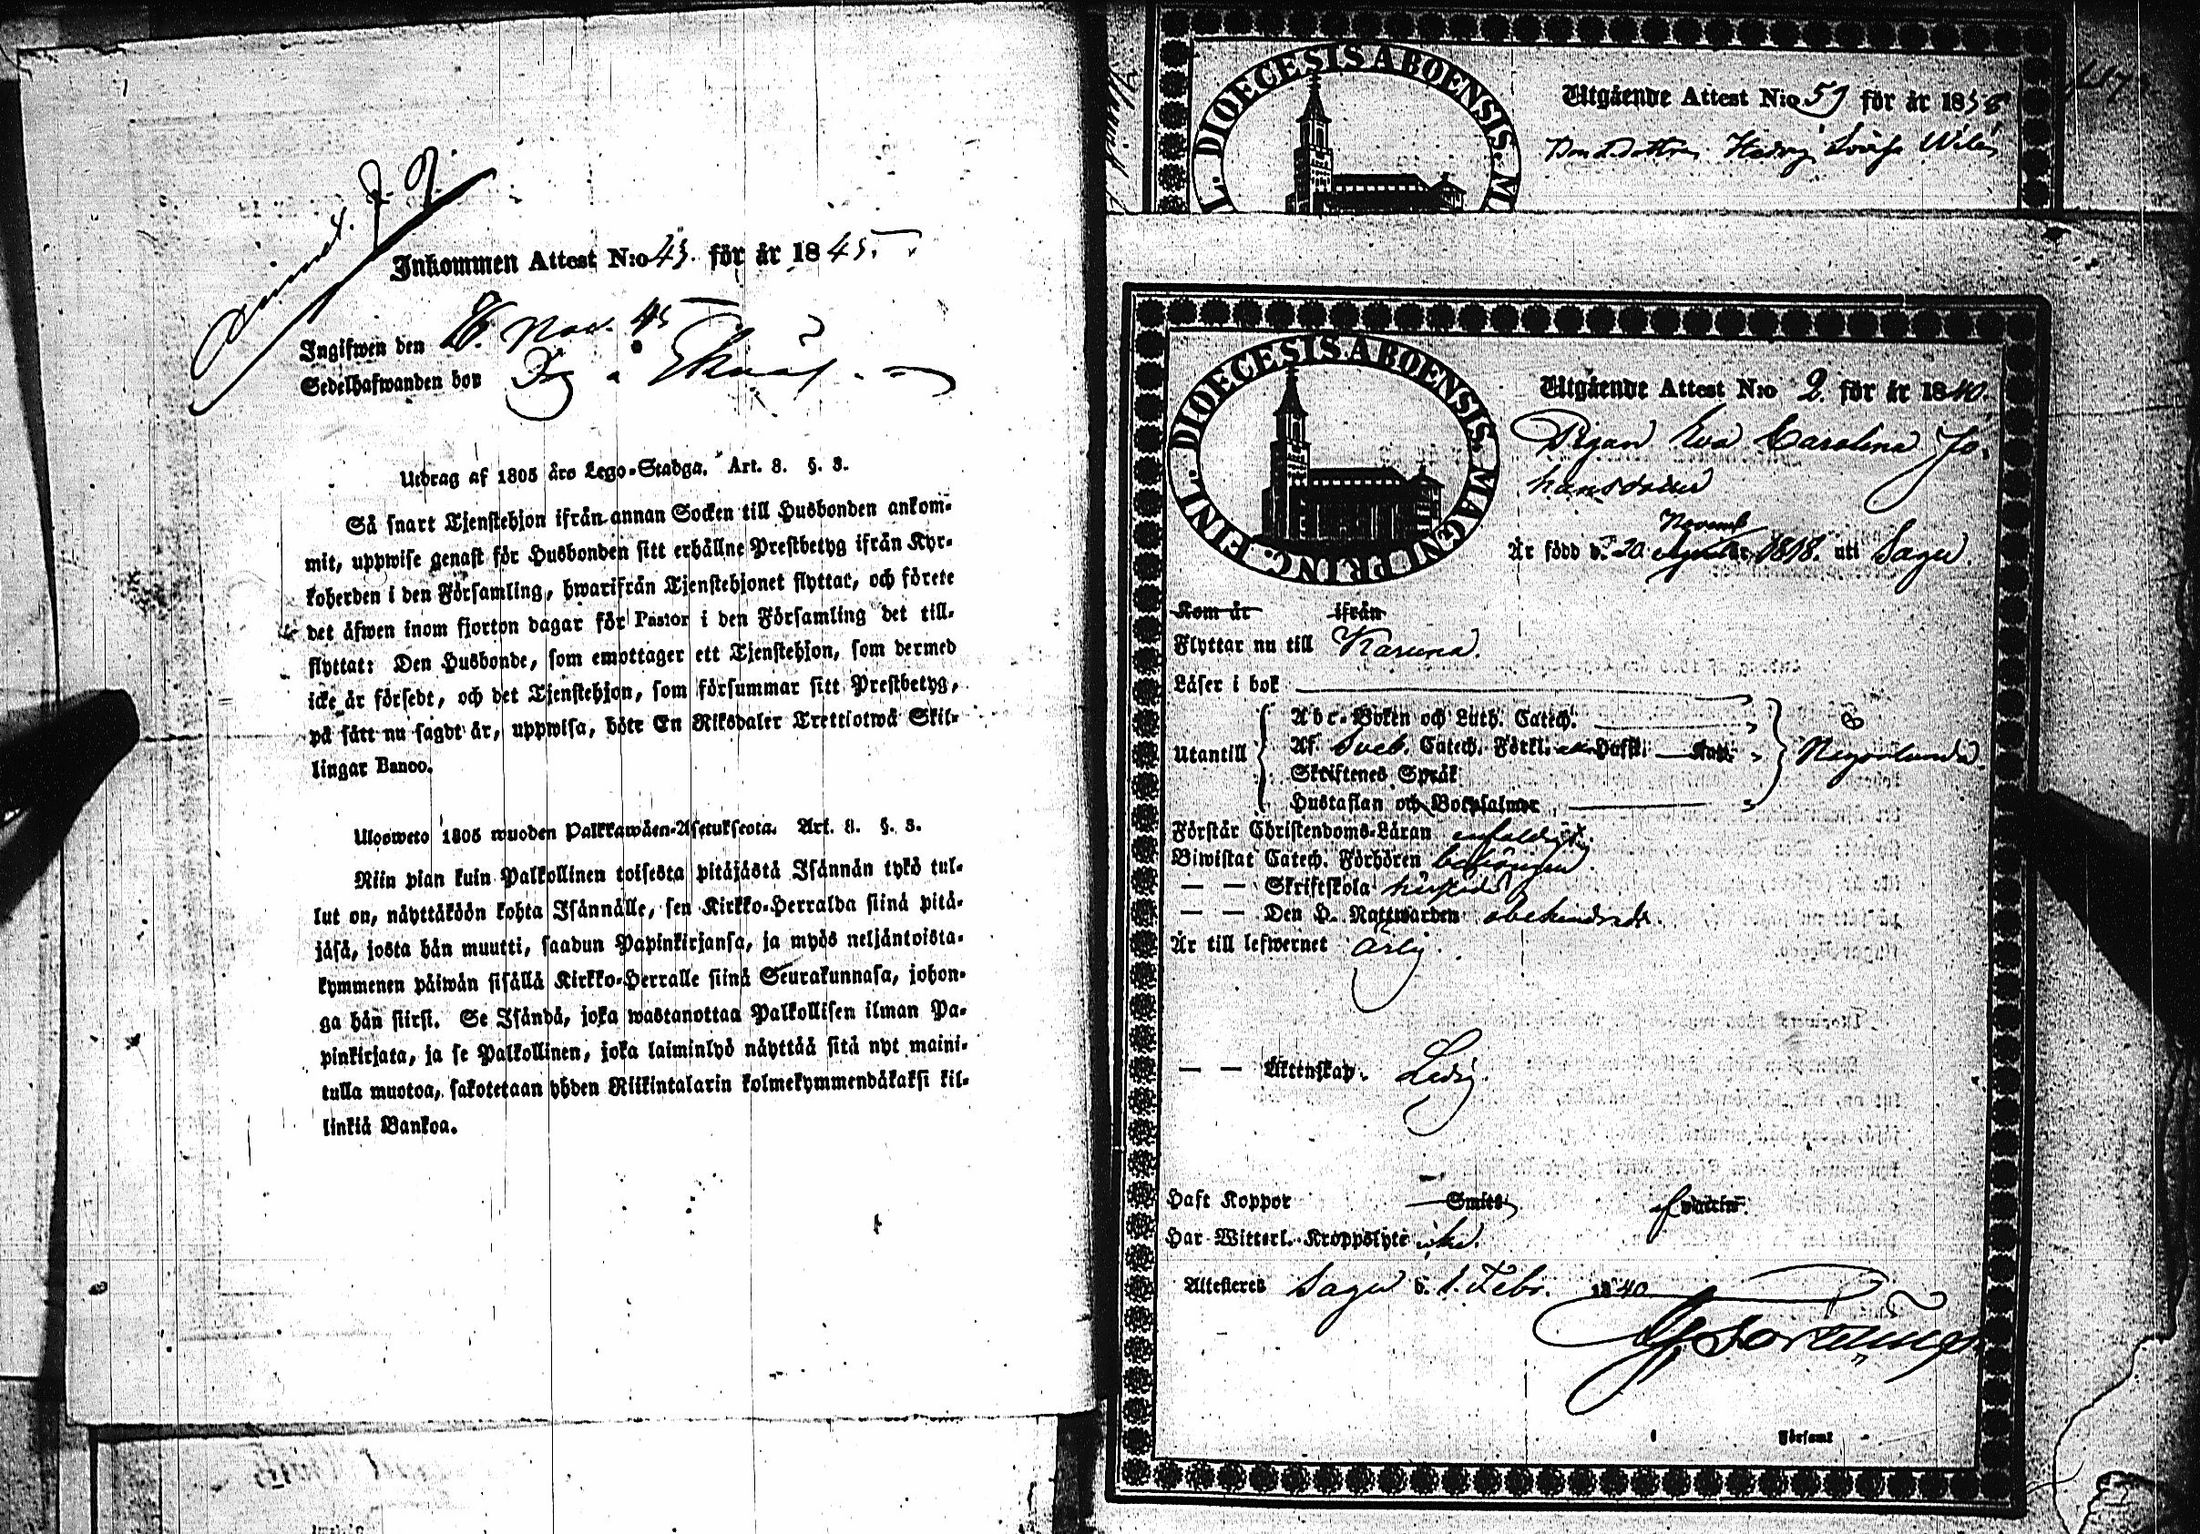 Inkommen Attest N:o 43. för år 1845.
Ingifwen den 26. Nov. 45
Sedelhafwanden bor
Utdrag af 1805 års Lego-Stadga. Art. 8. §. 3.
Så snart Tjenstehjon ifrån annan Socken till Husbonden ankom-
mit, uppwise genast för Husbonden sitt erhållne Prestbetyg ifrån Kyr-
koherden i den Församling, hwarifrån Tjenstehjonet flyttat, och förete
det äfwen inom fjorton dagar för Pastor i den Församling det till-
flyttat: Den Husbonde, som emottager ett Tjenstehjon, som dermed
icke är försedt, och det Tjenstehjon, som försummar sitt Prestbetyg,
på sätt nu sagdt är, uppwisa, böte En Riksdaler Trettiotwå Skil-
lingar Banco.
Ulosweto 1805 wuoden Palkkawäen-Asetuksesta. Art. 8. §. 3.
Niin pian kuin Palkollinen toisesta pitäjästä Isännän tykö tul-
lut on, näyttäköön kohta Isännälle, sen Kirkko-Herralda siinä pitä-
jäsä, josta hän muutti, saadun Papinkirjansa, ja myös neljäntoista-
kymmenen päiwän sisällä Kirkko-Herralle siinä Seurakunnasa, johon-
ga hän siirsi. Se Isändä, joka wastanottaa Palkollisen ilman Pa-
pinkirjata, ja se Palkollinen, joka laiminlyö näyttää sitä nyt maini-
tulla muotoa, sakotetaan yhden Riikintalarin kolmekymmendäkaksi kil-
linkiä Bankoa.
FINL. DIOECESIS ABOENSIS. MA
Utgående Attest N:o 59 för år 1856
Hedvig Lovisa
FINL. DIOECESIS ABOENSIS. MAGNI PRINC.
Utgående Attest N:o 2. för år 1840.
Pigan Eva Carolina Jo-
hansdotter
Novemb
Är född d. 20 April år 1818. uti Sagu.
Kom år ifrån
Flyttar nu till Karuna.
Läser i bok
Abc-Boken och Luth. Catech.
Utantill Af Sveb. Catech. Förkl. Nöjorlunda.
Skriftenes Språk
Hustaflan och Botpsalmer
Förstår Christendoms-Läran enfaldigt
Biwistat Catech. Förhören behörigen.
— — Skriftskola
— — Den H. Nattwarden obehindrad.
Är till lefwernet ärlig.
— — Äktenskap. Ledig.
Haft Koppor Smitt. waccin.
Har Witterl. Kroppslyte icke.
Attesteres Sagu d. 1. Febr. 1840
Församl